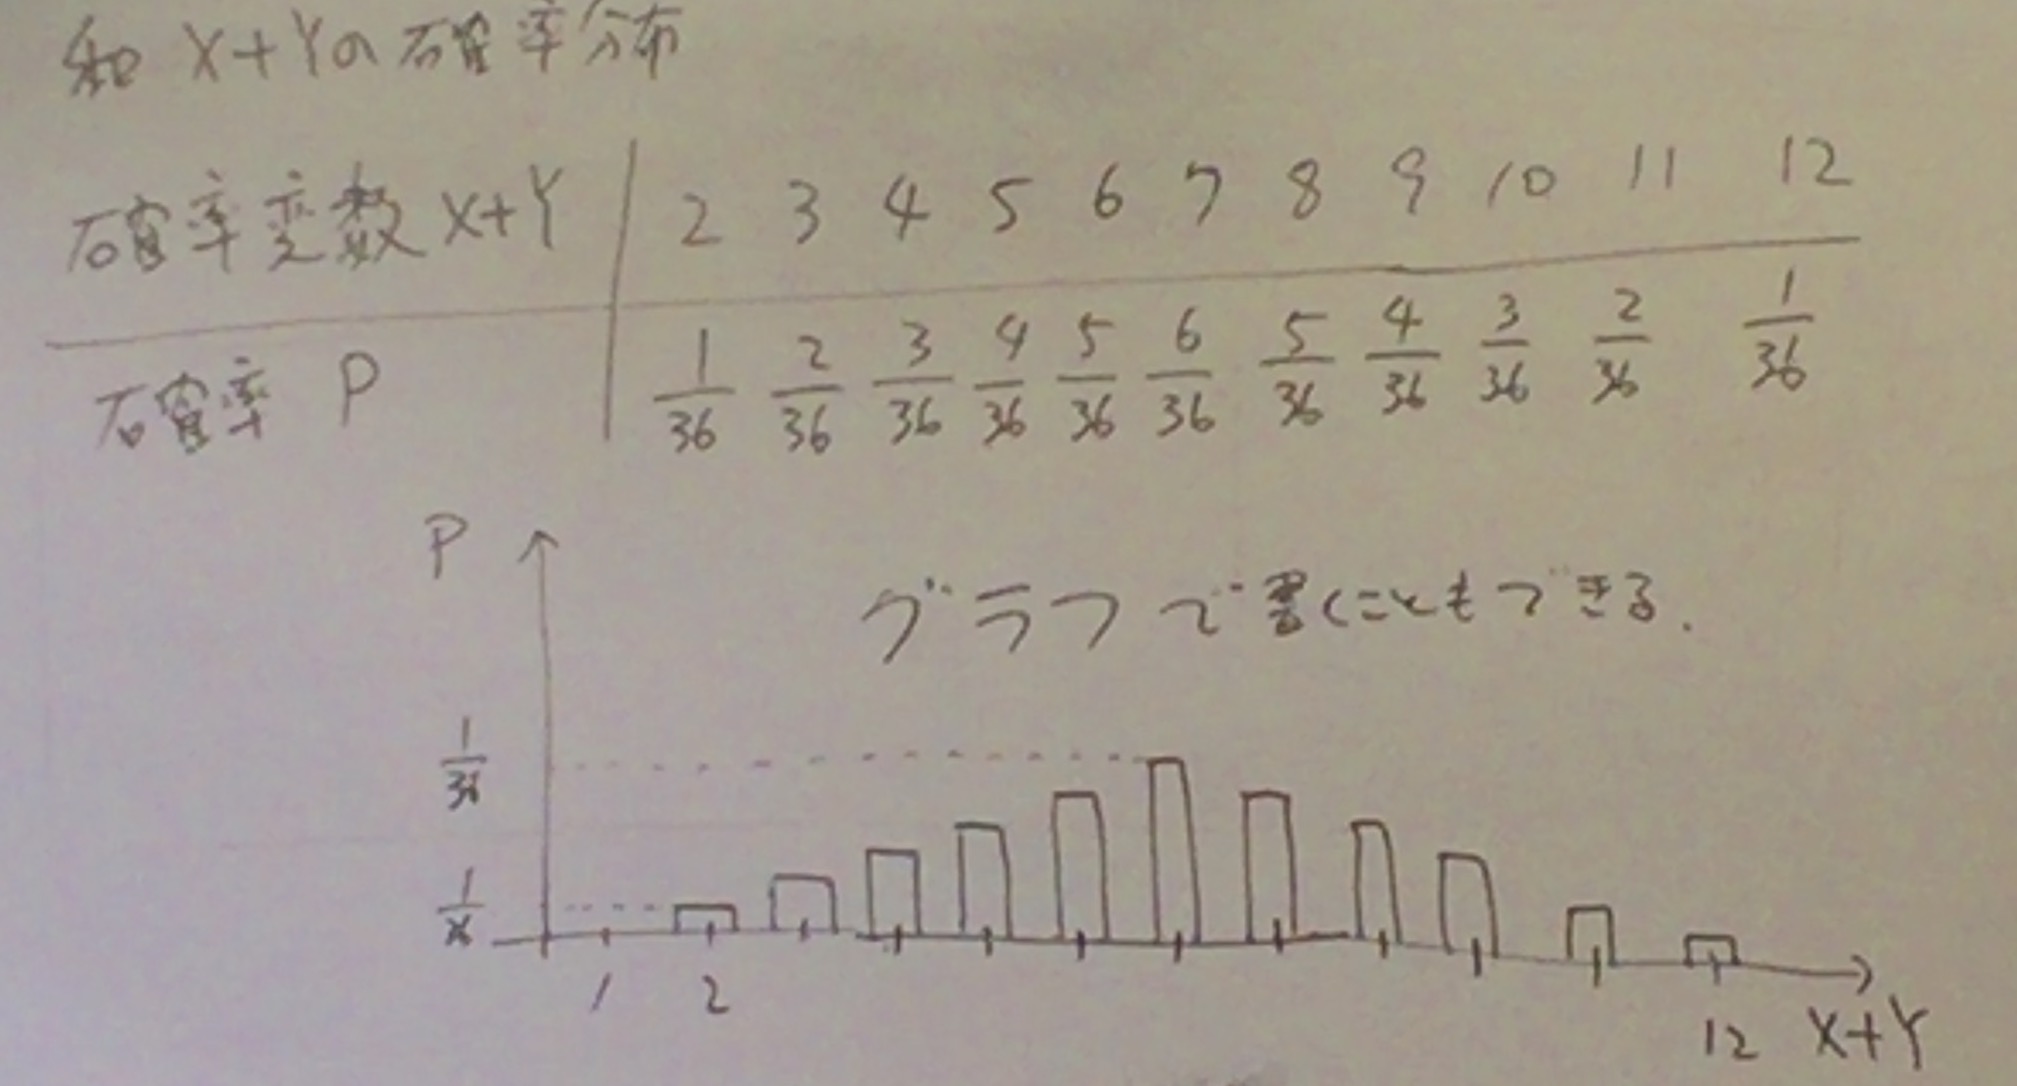 和 X+Yの確率分布
確率変数 X+Y 2 3 4 5 6 7 8 9 10 11 12
確率 P 1/36 2/36 3/36 4/36 5/36 6/36 5/36 4/36 3/36 2/36 1/36
P
グラフで書くこともできる.
1/36
1 2 12 X+Y